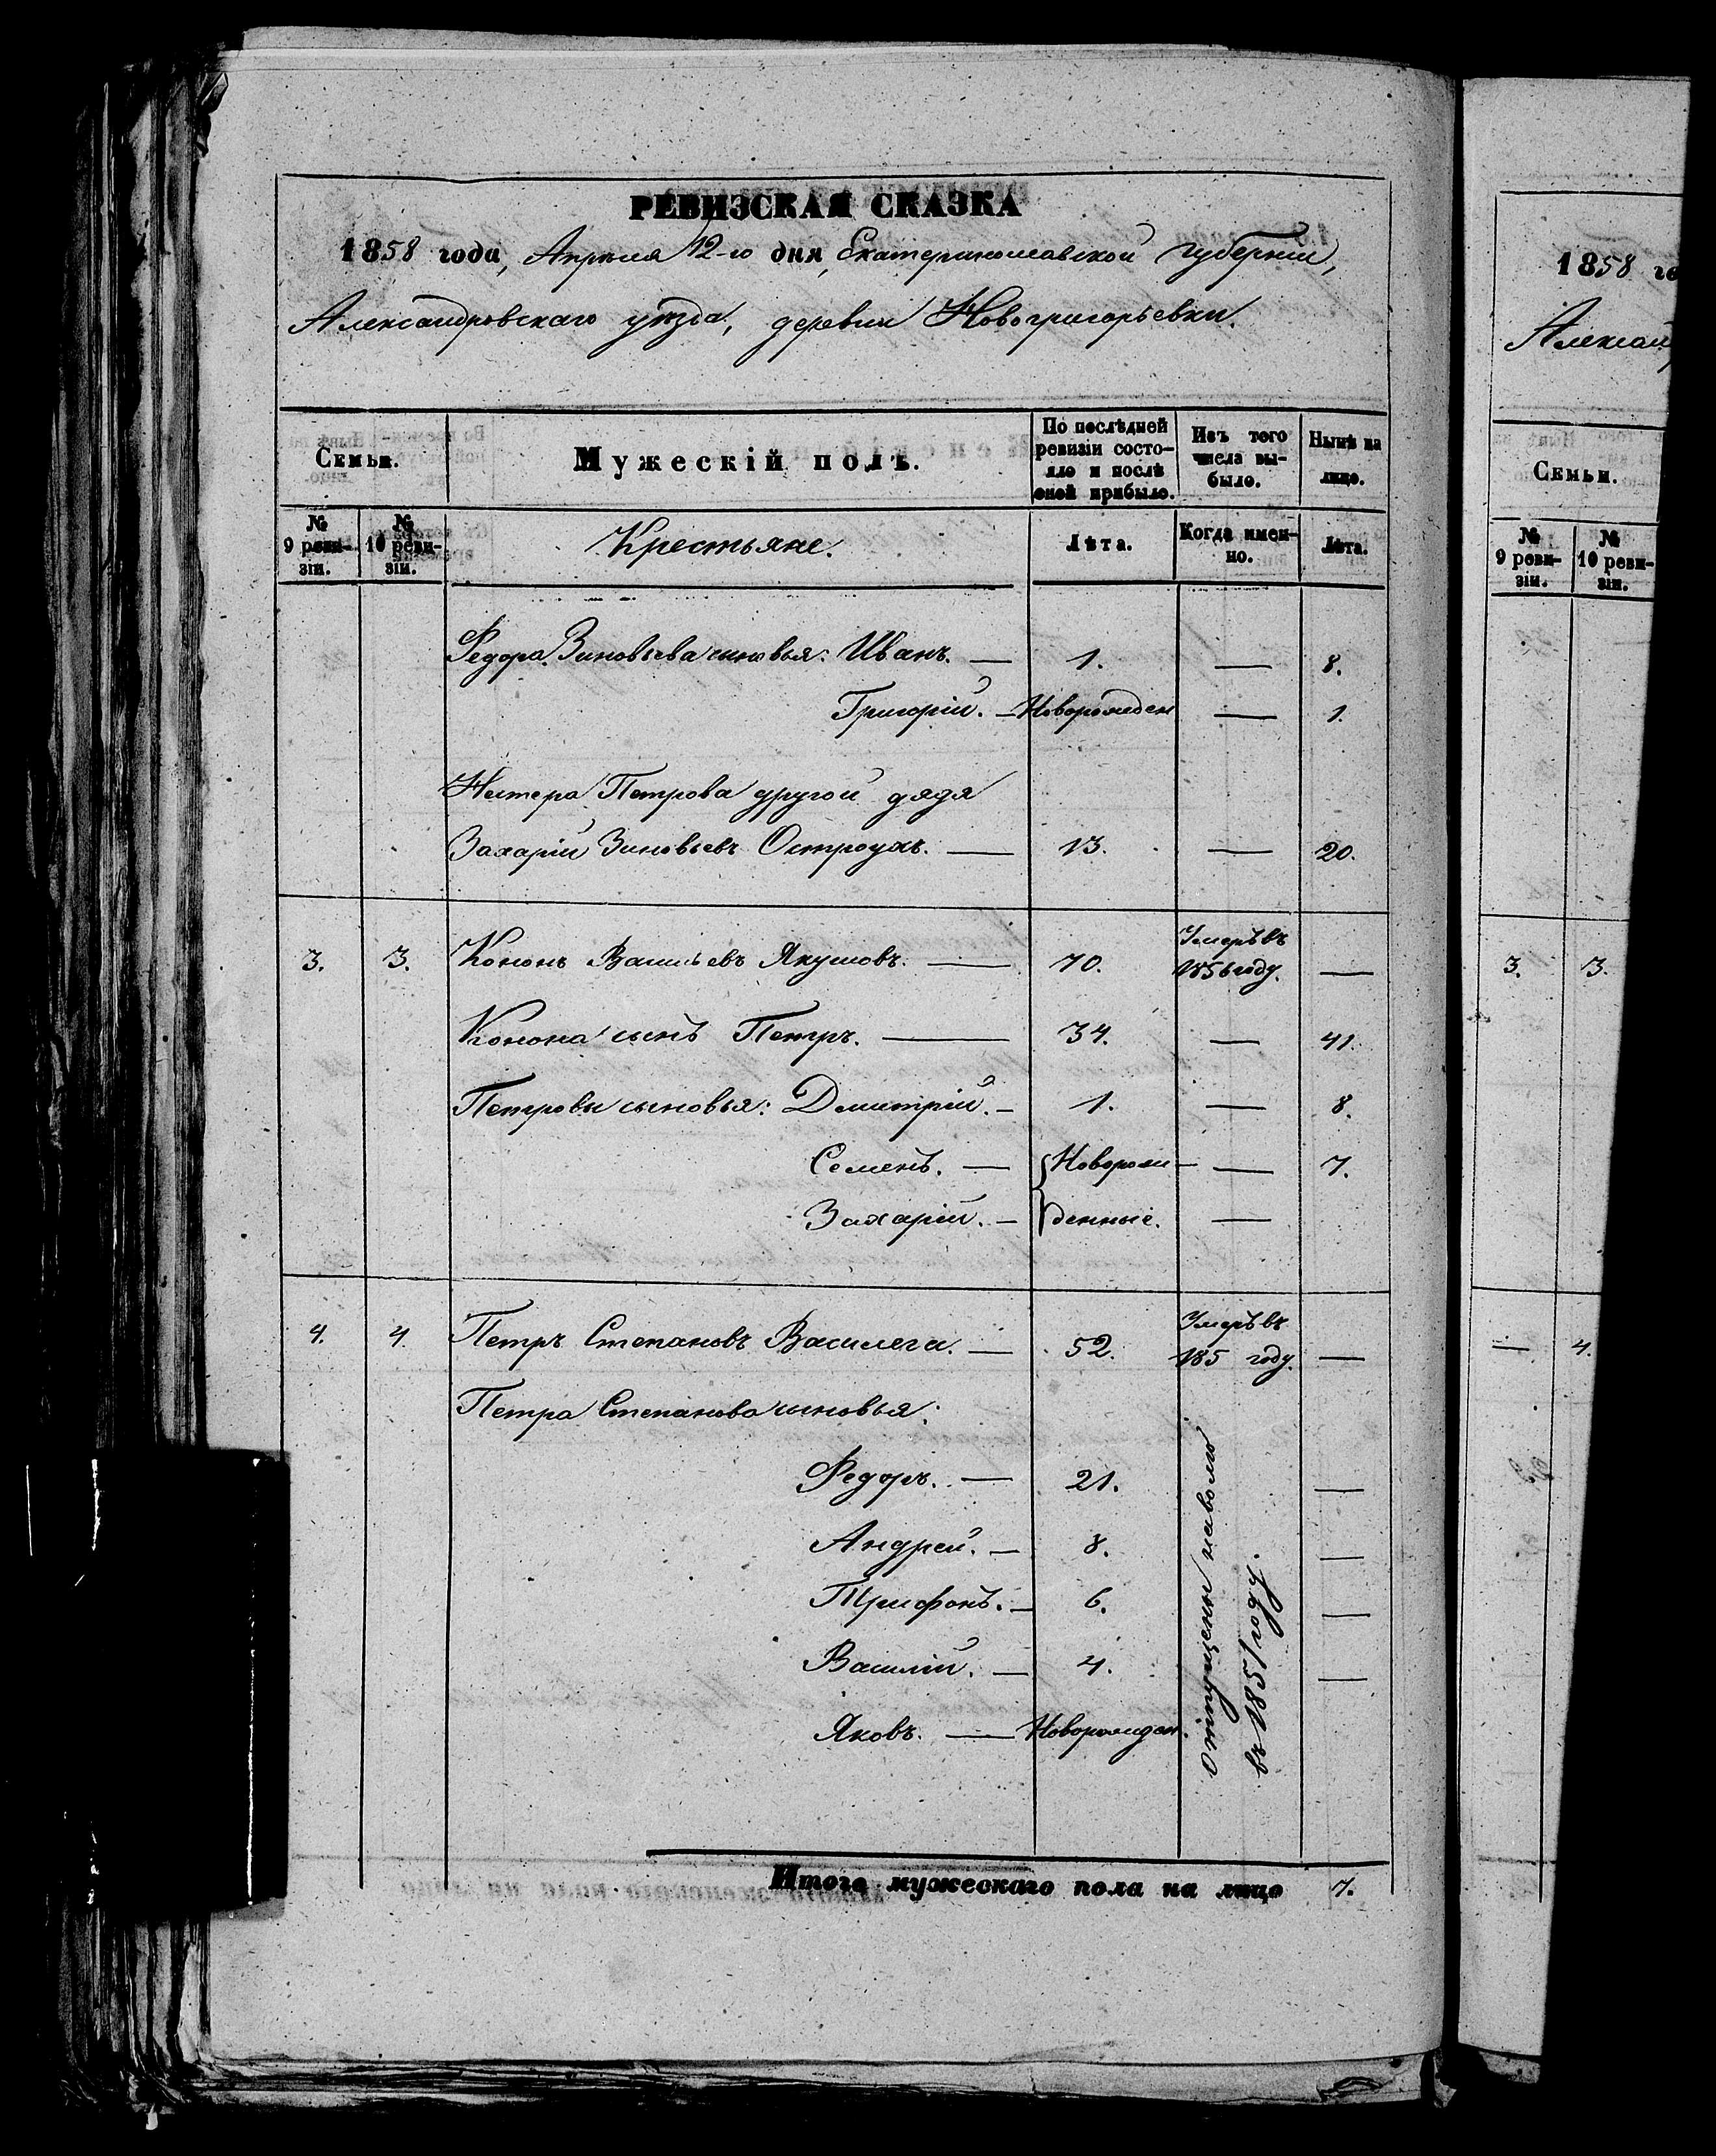 РЕВИЗСКАЯ СКАЗКА
1858 года, Апрѣля 12-го дня, Екатеринославской губерніи,
Александровскаго уѣзда, деревни Новогригорьевки.
Семьи.
Мужескій полъ.
По послѣдней ревизіи состояло и послѣ оной прибыло.
Изъ того числа выбыло.
Нынѣ на лицо.
№ 9 реви-зіи.
№ 10 реви-зіи.
Крестьяне.
Лѣта.
Когда имен-но.
Лѣта.
Федора Зиновьева сыновья: Иванъ. — 1. — 8.
Григорій. — Новорожден — 1.
Нестера Петрова другой дядя
Захарій Зиновьевъ Остроухъ. — 13. — 20.
3. 3. Кононъ Васильевъ Якушовъ. — 70. Умеръ въ 1856 году. —
Конона сынъ Петръ. — 34. — 41.
Петровы сыновья: Дмитрій. — 1. — 8.
Семенъ. — Новорож- — 7.
Захарій. — денные. —
4. 4. Петръ Степановъ Василега. — 52. Умеръ въ 185 году. —
Петра Степанова сыновья:
Федоръ. — 21. —
Андрей. — 8. —
Трифонъ. — 6. —
Василій. — 4. —
Яковъ. — Новорожден.
отпущены на волю
въ 1851 году.
Итого мужескаго пола на лицо 7.
1858 го
Алексан
Семьи.
№ 9 реви-зіи.
№ 10 реви-зіи.
3. 3.
— 4.